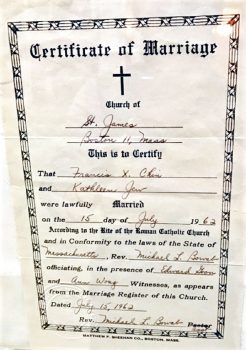 Certificate of Marriage
Church of
St. James
Boston 11, Mass
This is to Certify
That Francis X. Chin
and Kathleen Jew
were lawfully Married
on the 15 day of July 1962
According to the Rite of the Roman Catholic Church
and in Conformity to the laws of the State of
Massachusetts, Rev. Michael L.
officiating, in the presence of Edward
and Ann Wong Witnesses, as appears
from the Marriage Register of this Church.
Dated July 15, 1962
Rev. Michael L. Pastor
MATTHEW F. SHEEHAN CO., BOSTON, MASS.